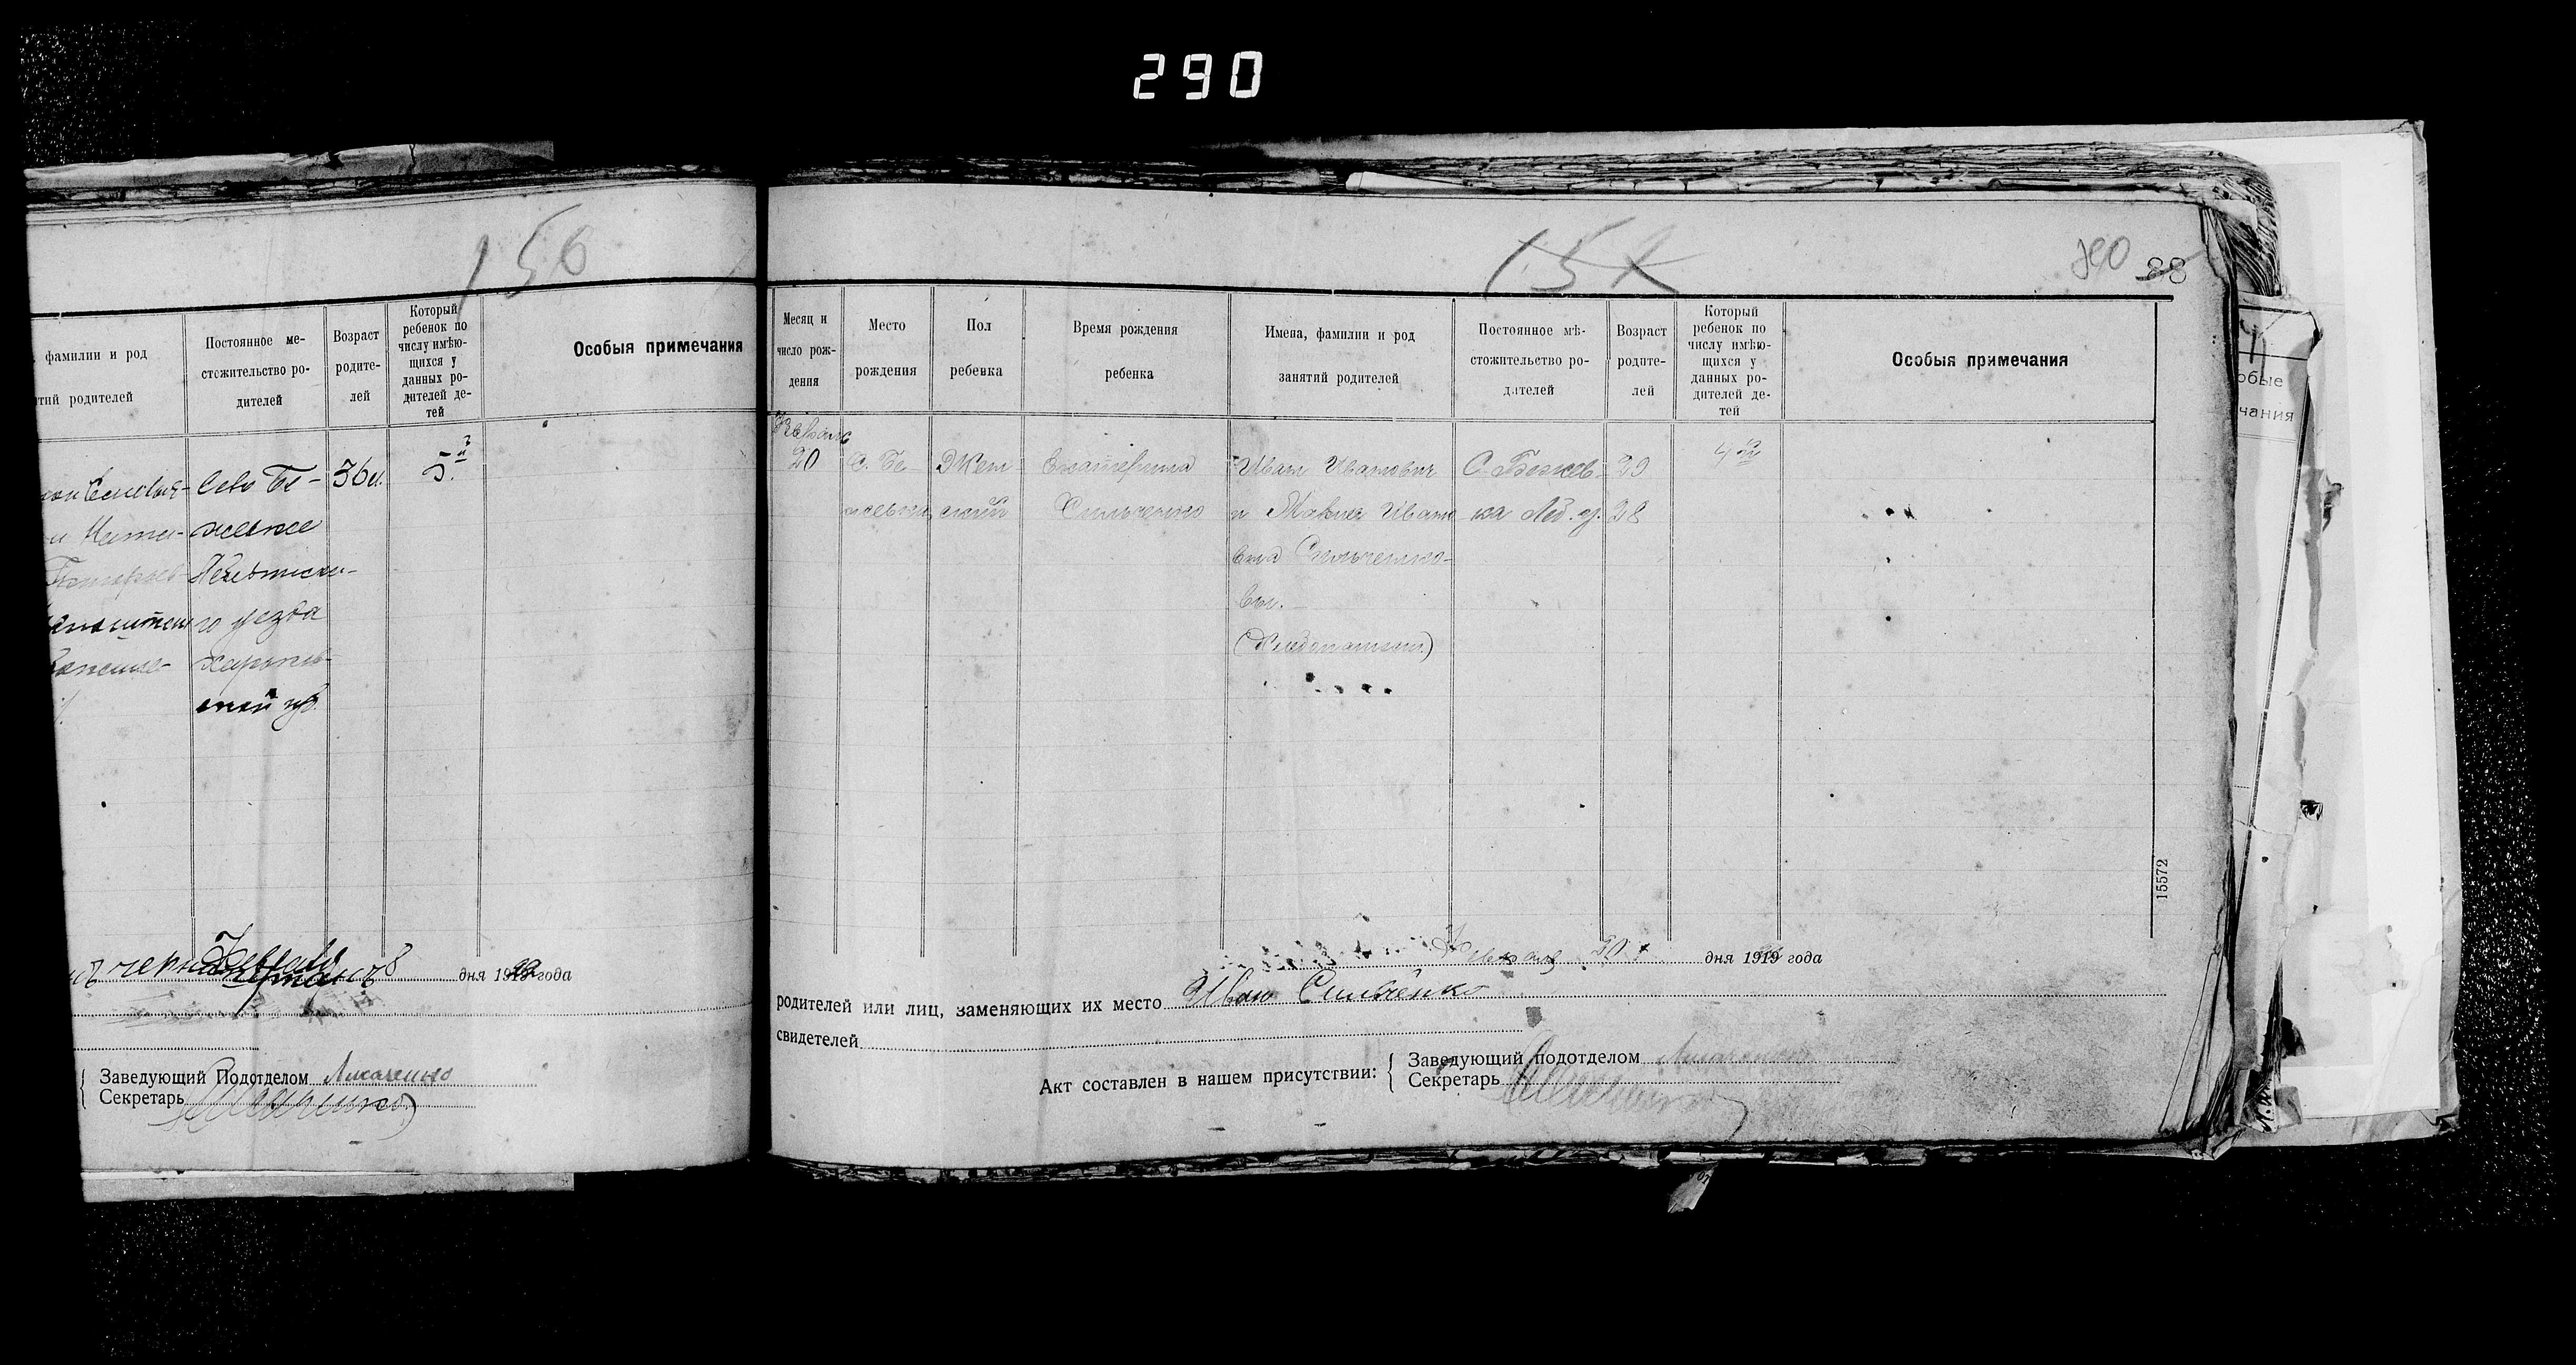 290
156
фамилии и род
тий родителей
Постоянное ме-
стожительство ро-
дителей
Возраст
родите-
лей
Который
ребенок по
числу имѣю-
щихся у
данных ро-
дителей де-
тей
Особыя примечания
Село Бе-
жевке
го уезда
Харьков-
ской губ.
36 л.
5.й
8
дня 19 года
Заведующий Подотделом Лысаченко
Секретарь
157
290
88
Месяц и
число рож-
дения
Место
рождения
Пол
ребенка
Время рождения
ребенка
Имена, фамилии и род
занятий родителей
Постоянное мѣ-
стожительство ро-
дителей
Возраст
родите-
лей
Который
ребенок по
числу имѣю-
щихся у
данных ро-
дителей де-
тей
Особыя примечания
Января
20
С. Бе
жевка
Жен
ский
Екатерина
Сильченко
Иван Иванович
и Мария Ивано
вна Сильченко-
вы.
(Хлебопашет.)
С. Бежев-
ка Леб. у.
29
28
4й
15572
Января 20
дня 1919 года
родителей или лиц, заменяющих их место Иван Сильченко
свидетелей
Акт составлен в нашем присутствии:
Заведующий подотделом Лысаченко
Секретарь
обые
чания